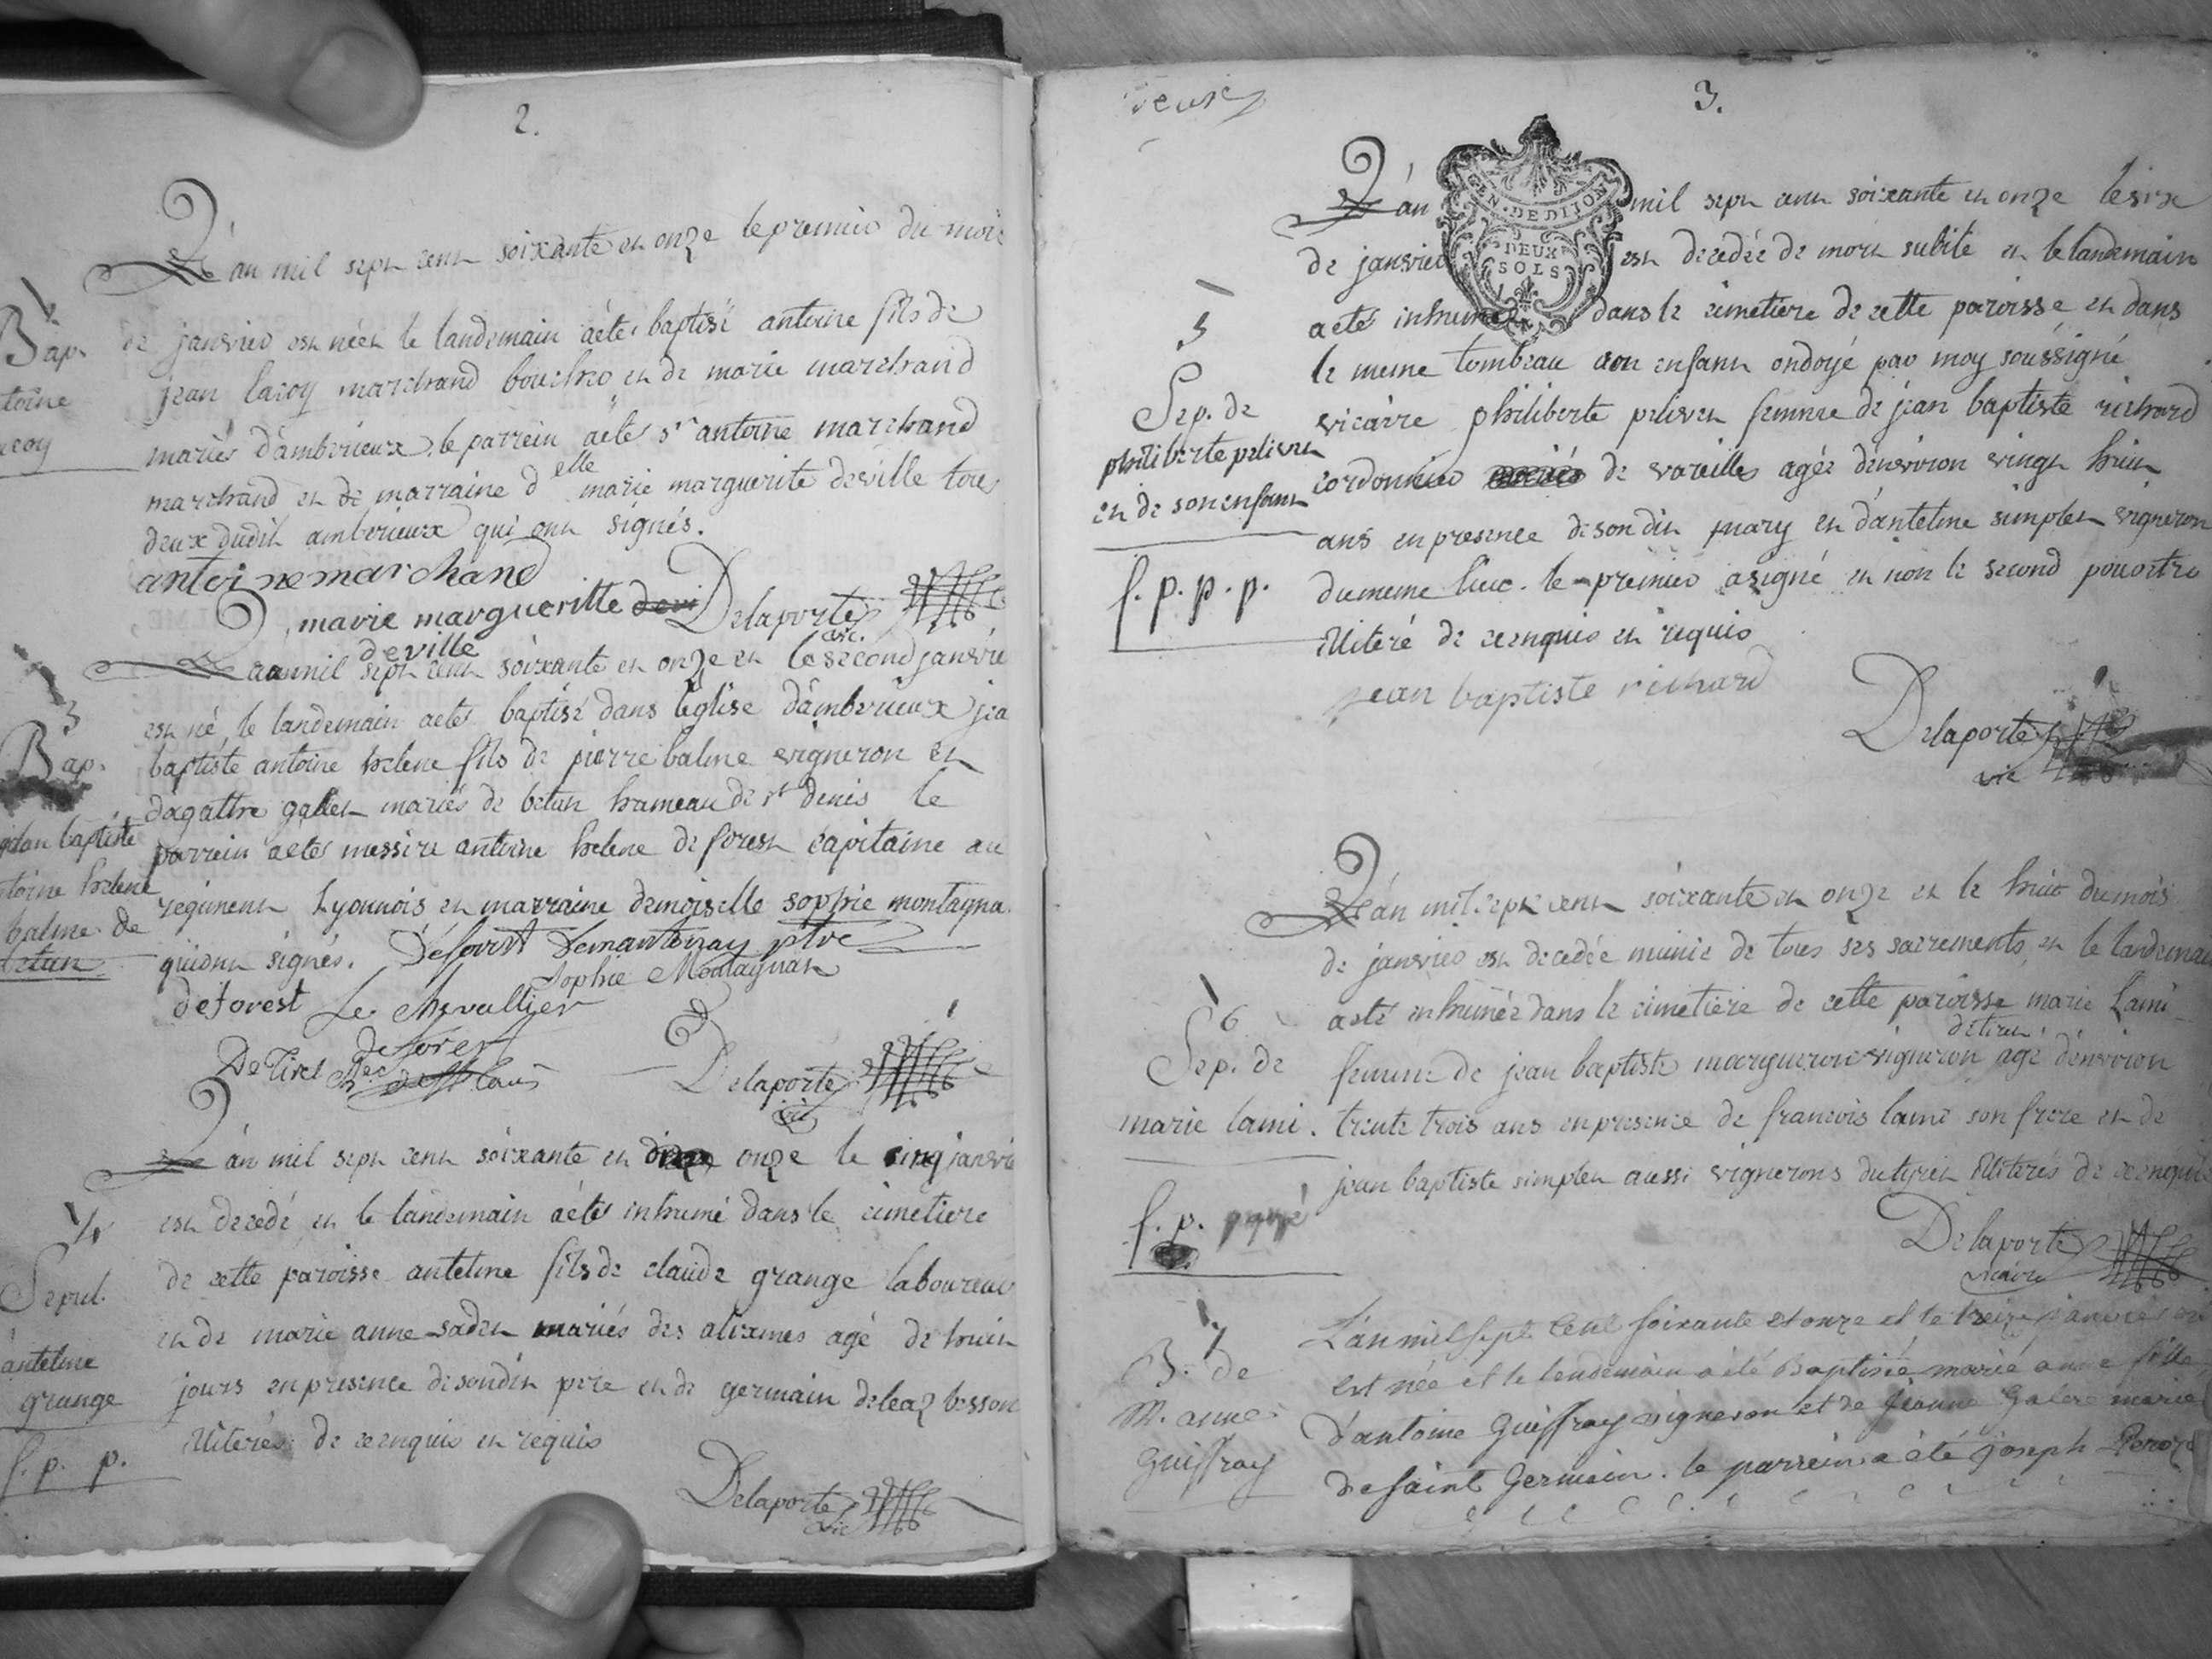 2.
L'an mil sept cent soixante et onze le premier du mois
de janvier est né et le landemain aété baptisé antoine fils de
jean lacoy marchand boucher et de marie marchand
mariés d'amberieux. le parrein aété sr antoine marchand
marchand et de marraine delle marie marguerite deville tous
deux dudit amberieux qui ont signés.
antoine marchand
marie margueritte
deville
Delaporte
vic.
Bap.
toine
L'an mil sept cent soixante et onze et le second janvie
est né, le landemain aété baptisé dans léglise d'amberieux jea
baptiste antoine helene fils de pierre balme vigneron et
dagathe gallet mariés de betan hameau de st denis le
parrein aété messire antoine helene de forest capitaine au
regiment Lyonnois et marraine demoiselle sophie montagna
qui ont signés. Deforest Demantenay ptre
Sophie Montagnat
deforest Le chevallier
deforest
DeTiret
Delaporte
vic
3
Bap.
jean baptiste
toine helene
balme de
betan
L'an mil sept cent soixante et onze le cinq janvie
est decedé et le landemain aété inhumé dans le cimetiere
de cette paroisse antelme fils de claude grange laboureur
et de marie anne sadet mariés des alixmes agé de huit
jours en presence de sondit pere et de germain deleaz besson
illiterés de ce enquis et requis
Delaporte
vic
4
Sepul.
antelme
grange
f. p. p.
deux
3.
GEN. DE DIJON
DEUX
SOLS
L'an mil sept cent soixante et onze le six
de janvier est decedée de mort subite et le landemain
aété inhumée dans le cimetiere de cette paroisse et dans
le meme tombeau son enfant ondoyé par moy soussigné
vicaire philiberte pelivet femme de jean baptiste richard
cordonnier de vareilles agée d'environ vingt huit
ans en presence de son dit mary et d'antelme simplet vigneron
du meme lieu. le premier a signé et non le second pour etre
illiteré de ce enquis et requis
jean baptiste richard
Delaporte
vic
5
Sep. de
philiberte pelivet
et de son enfant
f. p. p. p.
L'an mil sept cent soixante et onze et le huit du mois
de janvier est decedée munie de tous ses sacrements, et le landemain
aeté inhumée dans le cimetiere de cette paroisse marie Lami
femme de jean baptiste margueron vigneron du tiret agé d'environ
trente trois ans en presence de francois lami son frere et de
jean baptiste simplet aussi vignerons du tiret illiterés de ce enquis
Delaporte
vicaire
6
Sep. de
marie lami.
f. p.
L'an mil Sept Cent Soixante et onze et le treize janvier
est née et le lendemain a été Baptisée marie anne fille
d'antoine Guiffray vigneron et de jeanne Galere mariés
de saint Germain. le parrein a été joseph
7
B. de
M. anne
Guiffray